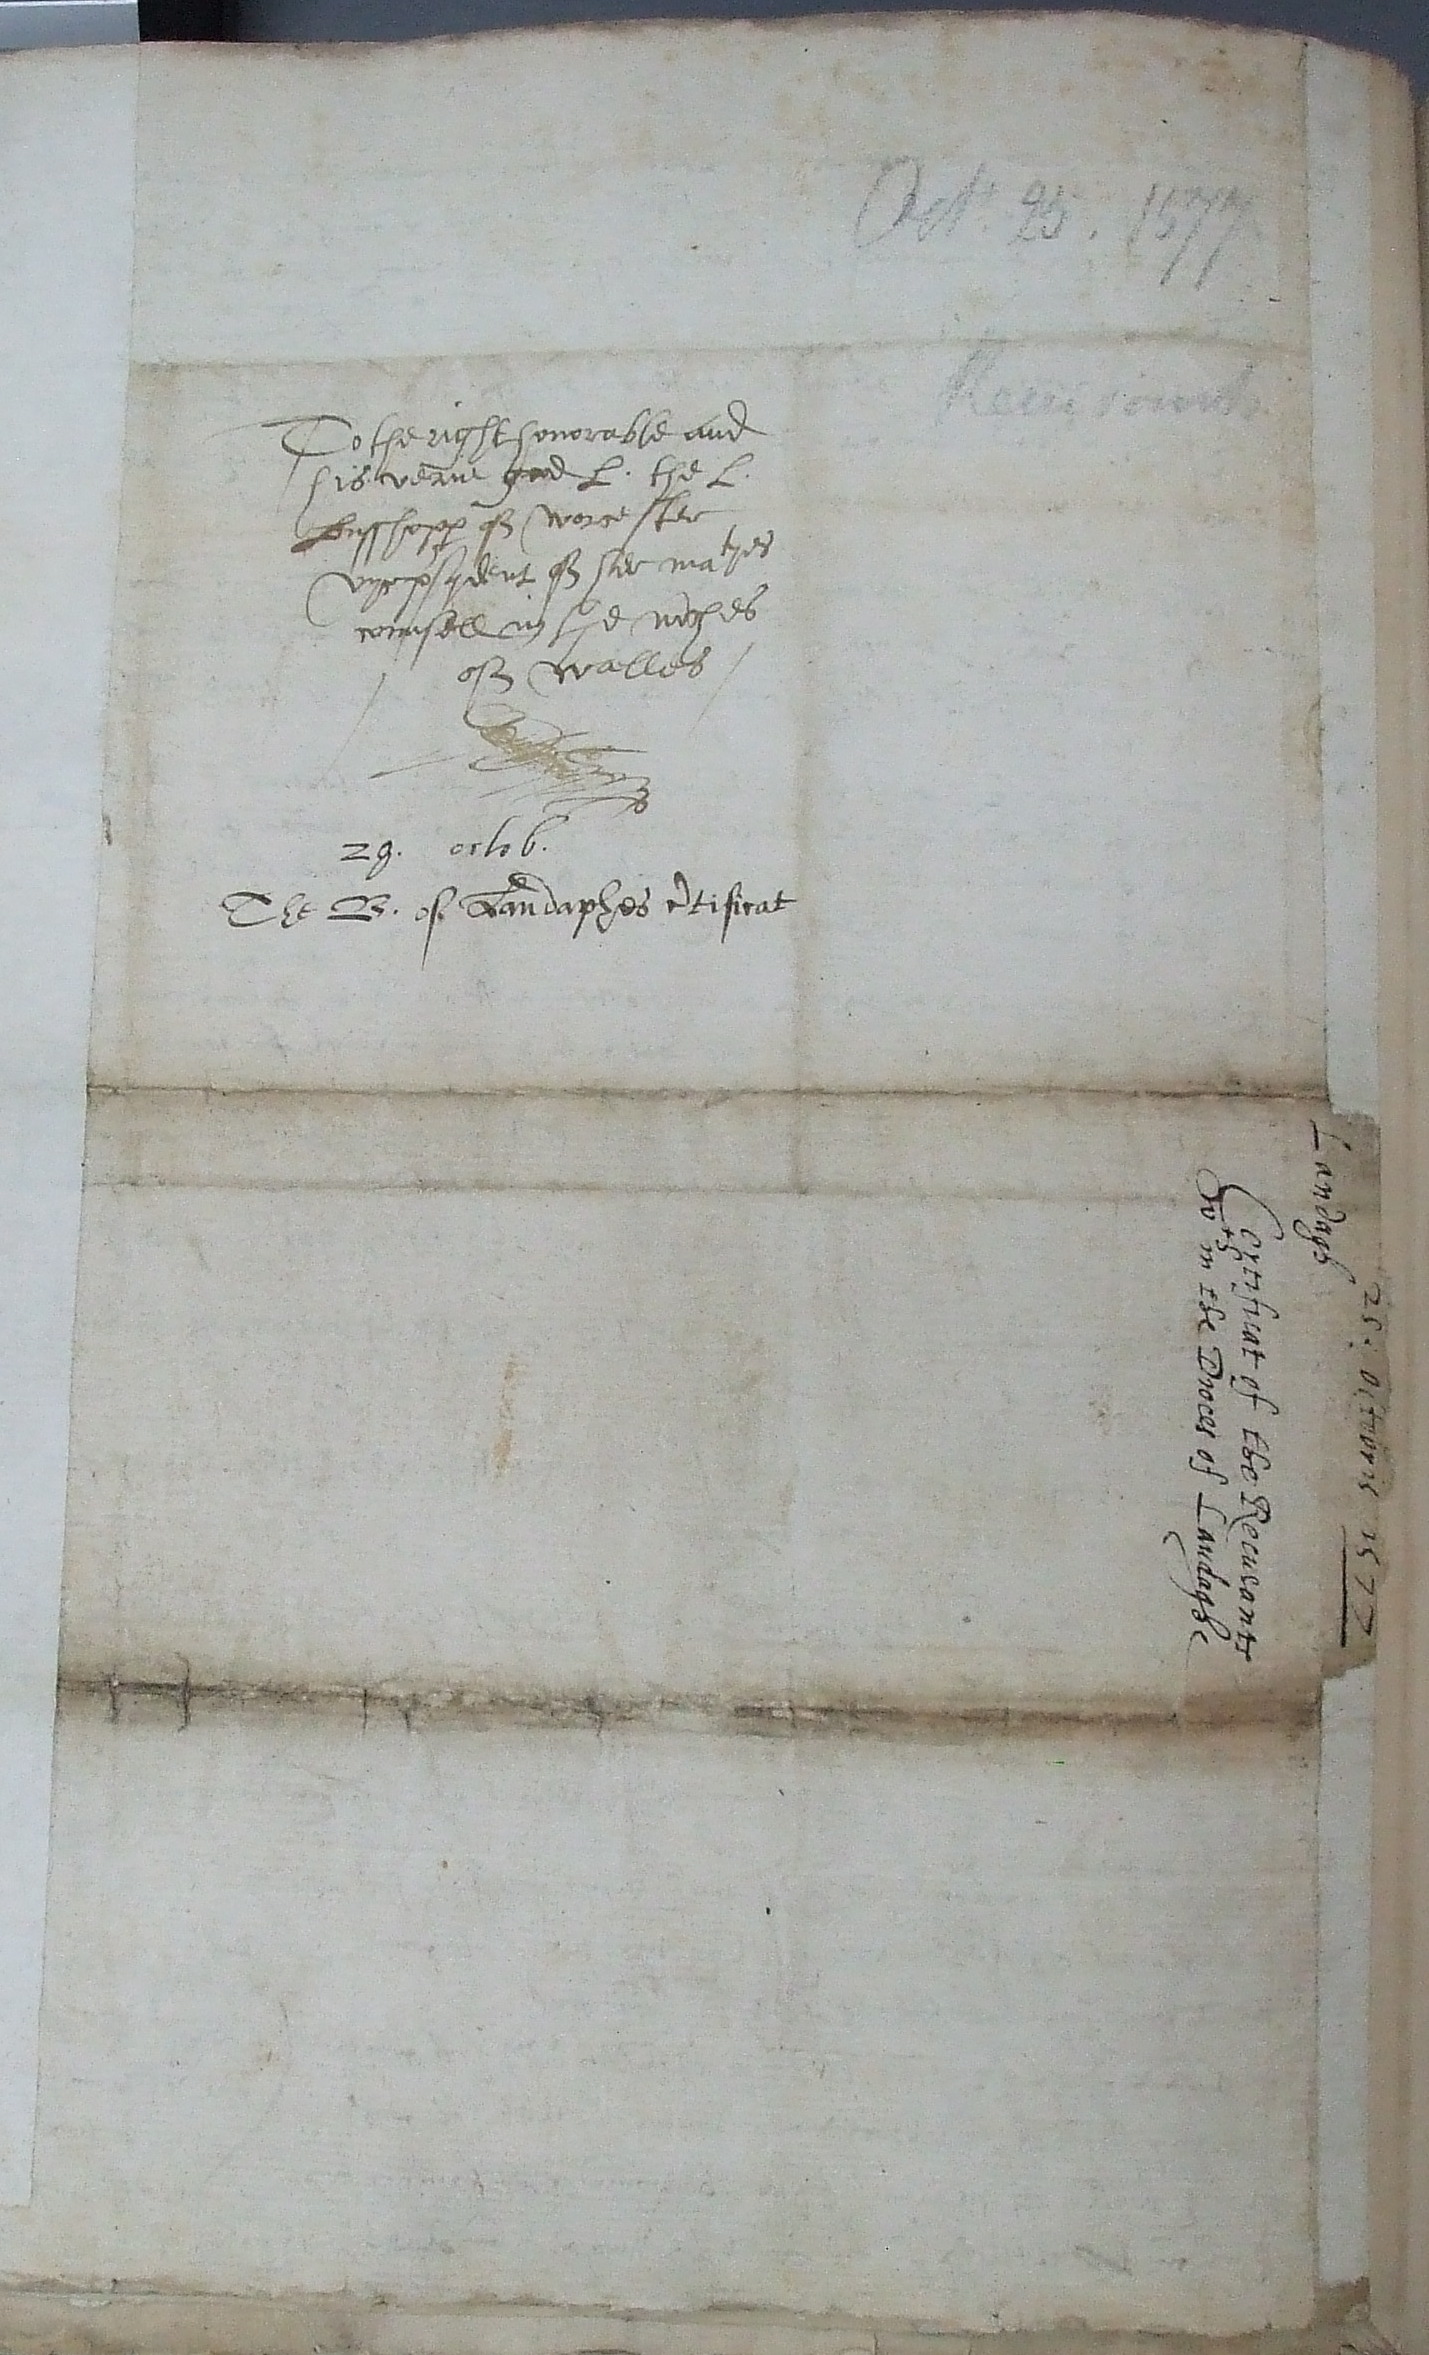 Oct. 25. 1577
Recusants
To the right honorable and
his verie good L. the L.
Busshopp of Worcester
vycepsydent of her maties
counsell in the mches
of Walles
29. octob.
The B. of Landaphes certificat
Landaph
25. Octobris 1577
Certificat of the Recusants
in the Dioces of Landaphe